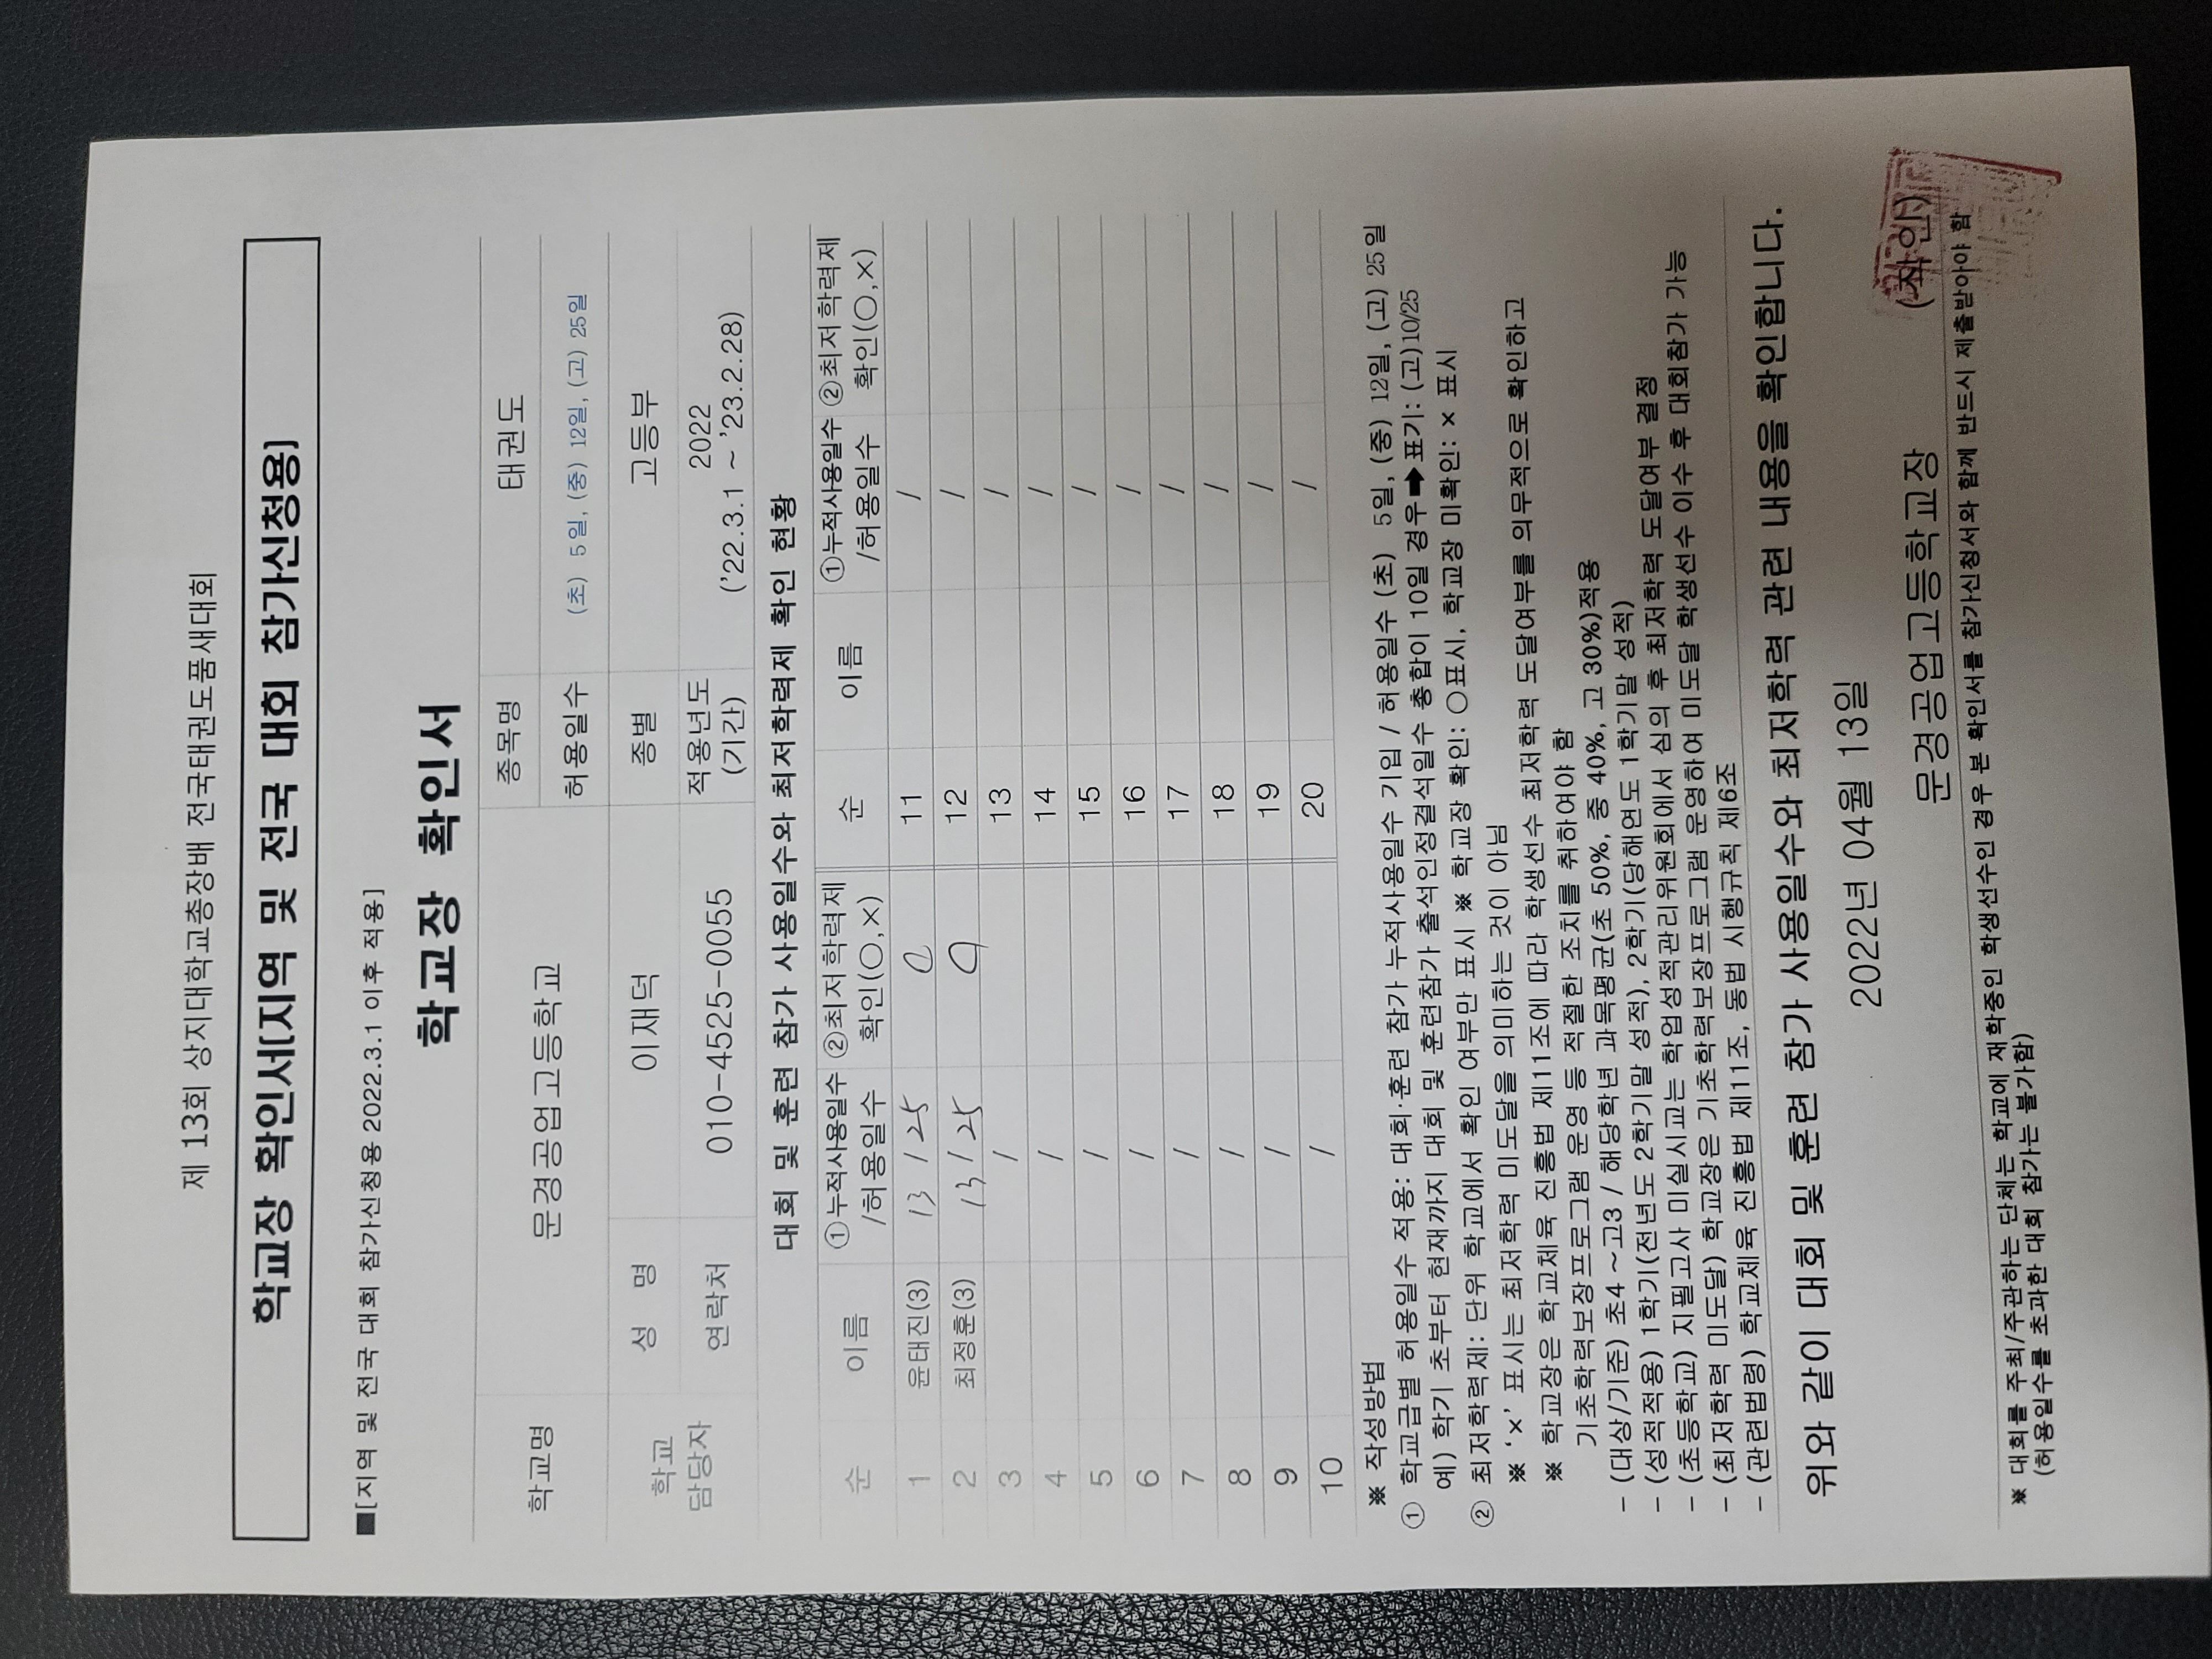 제 13회 상지대학교총장배 전국태권도품새대회
학교장 확인서[지역 및 전국 대회 참가신청용]
■[지역 및 전국 대회 참가신청용 2022.3.1 이후 적용]
학교장 확인서
학교명 문경공업고등학교 종목명 태권도
허용일수 (초) 5일, (중) 12일, (고) 25일
학교 담당자 성 명 이재덕 종별 고등부
연락처 010-4525-0055 적용년도 (기간) 2022 ('22.3.1 ~ '23.2.28)
대회 및 훈련 참가 사용일수와 최저학력제 확인 현황
순 이름 ①누적사용일수 /허용일수 ②최저학력제 확인(○,×) 순 이름 ①누적사용일수 /허용일수 ②최저학력제 확인(○,×)
1 윤태진(3) 13 / 25 ○ 11 /
2 최정훈(3) 13 / 25 ○ 12 /
3 / 13 /
4 / 14 /
5 / 15 /
6 / 16 /
7 / 17 /
8 / 18 /
9 / 19 /
10 / 20 /
※ 작성방법
① 학교급별 허용일수 적용: 대회·훈련 참가 누적사용일수 기입 / 허용일수 (초) 5일, (중) 12일, (고) 25일
예) 학기 초부터 현재까지 대회 및 훈련참가 출석인정결석일수 총합이 10일 경우➡표기: (고)10/25
② 최저학력제: 단위 학교에서 확인 여부만 표시 ※ 학교장 확인: ○표시, 학교장 미확인: × 표시
※ '×' 표시는 최저학력 미도달을 의미하는 것이 아님
※ 학교장은 학교체육 진흥법 제11조에 따라 학생선수 최저학력 도달여부를 의무적으로 확인하고
기초학력보장프로그램 운영 등 적절한 조치를 취하여야 함
- (대상/기준) 초4 ~고3 / 해당학년 과목평균(초 50%, 중 40%, 고 30%)적용
- (성적적용) 1학기(전년도 2학기말 성적), 2학기(당해연도 1학기말 성적)
- (초등학교) 지필고사 미실시교는 학업성적관리위원회에서 심의 후 최저학력 도달여부 결정
- (최저학력 미도달) 학교장은 기초학력보장프로그램 운영하여 미도달 학생선수 이수 후 대회참가 가능
- (관련법령) 학교체육 진흥법 제11조, 동법 시행규칙 제6조
위와 같이 대회 및 훈련 참가 사용일수와 최저학력 관련 내용을 확인합니다.
2022년 04월 13일
문경공업고등학교장 (직인)
※ 대회를 주최/주관하는 단체는 학교에 재학중인 학생선수인 경우 본 확인서를 참가신청서와 함께 반드시 제출받아야 함
(허용일수를 초과한 대회 참가는 불가함)